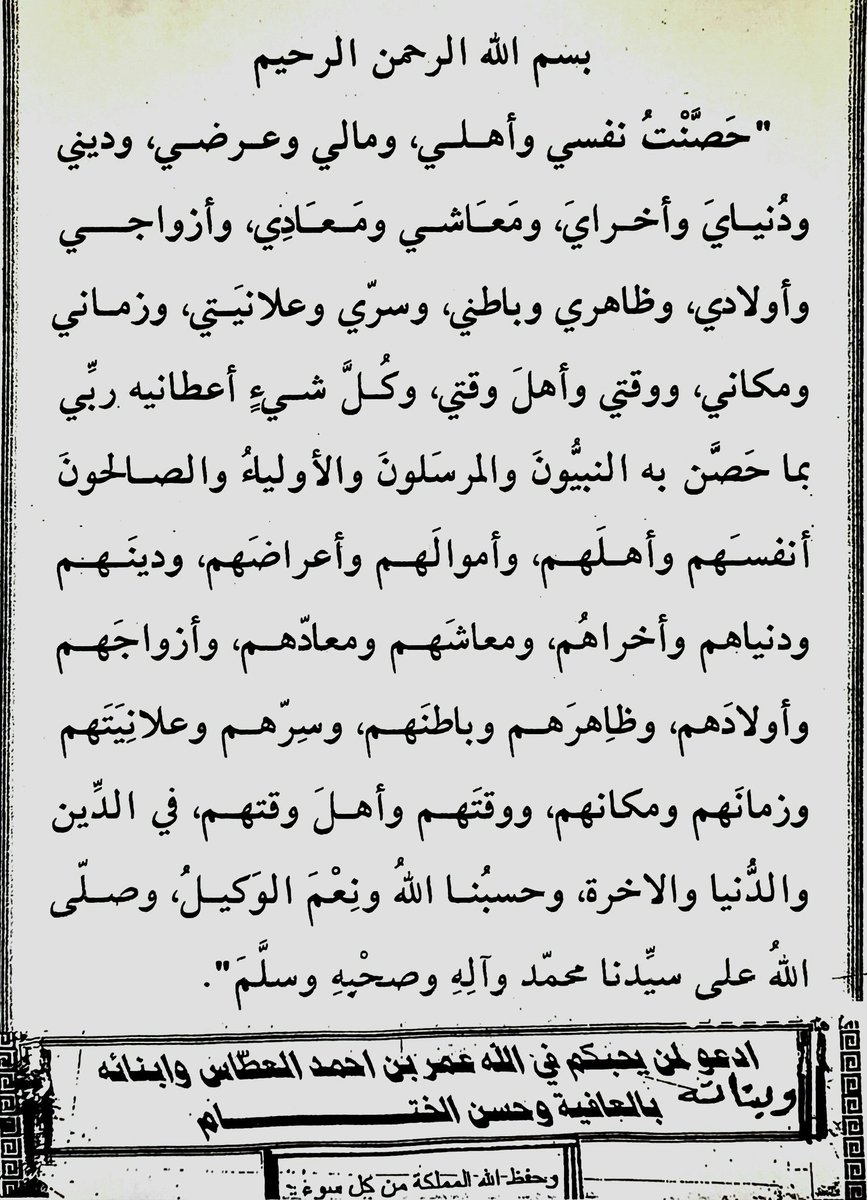 بسم الله الرحمن الرحيم
"حَصَّنْتُ نفسي وأهلي، ومالي وعرضي، وديني
ودُنيايَ وأخرايَ، ومَعَاشي ومَعَادِي، وأزواجي
وأولادي، وظاهري وباطني، وسرّي وعلانيَتي، وزماني
ومكاني، ووقتي وأهلَ وقتي، وكُلَّ شيءٍ أعطانيه ربِّي
بما حَصَّن به النبيُّونَ والمرسَلونَ والأولياءُ والصالحونَ
أنفسَهم وأهلَهم، وأموالَهم وأعراضَهم، ودينَهم
ودنياهم وأخراهُم، ومعاشَهم ومعادّهم، وأزواجَهم
وأولادَهم، وظاِهرَهم وباطنَهم، وسِرّهم وعلانِيَتَهم
وزمانَهم ومكانهم، ووقتَهم وأهلَ وقتهم، في الدِّين
والدُّنيا والاخرة، وحسبُنا اللهُ ونِعْمَ الوَكيلُ، وصلّى
اللهُ على سيِّدنا محمّد وآلِهِ وصحْبِهِ وسلَّمَ".
ادعو لمن يحبكم في الله عمر بن احمد العطّاس وابنائه
وبناته بالعافية وحسن الختام
وحفظ الله المملكة من كل سوء